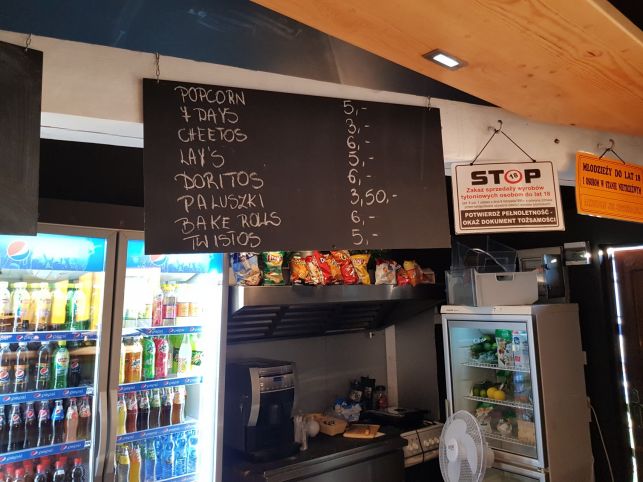 POPCORN 5,-
7 DAYS 3,-
CHEETOS 6,-
LAY'S 5,-
DORITOS 6,-
PALUSZKI 3,50,-
BAKE ROLLS 6,-
TWISTOS 5,-
STOP
18
Zakaz sprzedaży wyrobów
tytoniowych osobom do lat 18
POTWIERDŹ PEŁNOLETNOŚĆ -
OKAŻ DOKUMENT TOŻSAMOŚCI
MŁODZIEŻY DO LAT 18
I OSOBOM W STANIE NIETRZEŹWYM
pepsi
pepsi